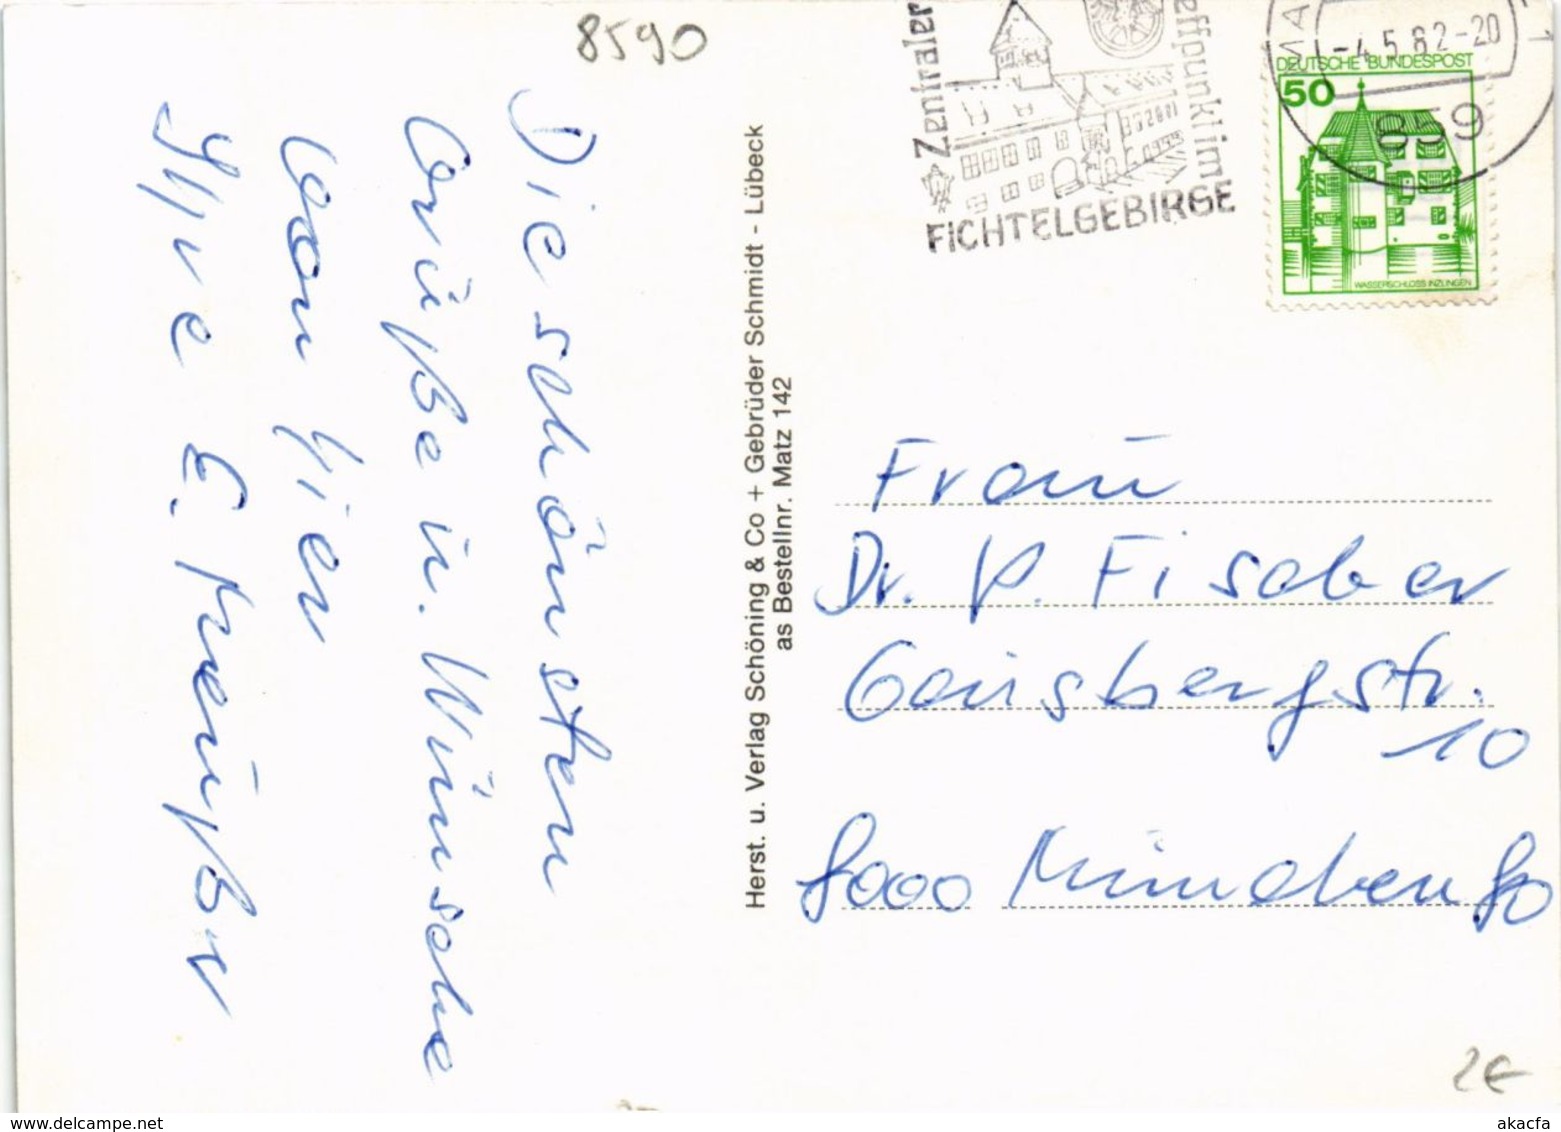 8590
Die schönsten
Grüße u. Wünsche
von hier
Ihre E.
Herst. u. Verlag Schöning & Co + Gebrüder Schmidt - Lübeck
as Bestellnr. Matz 142
Zentraler
effpunkt im
FICHTELGEBIRGE
-4.5.82-20
859
DEUTSCHE BUNDESPOST
50
WASSERSCHLOSS INZLINGEN
Frau
Dr. P. Fischer
Gaisbergstr.
10
8000 München 80
2€
akpool.de
akacfa